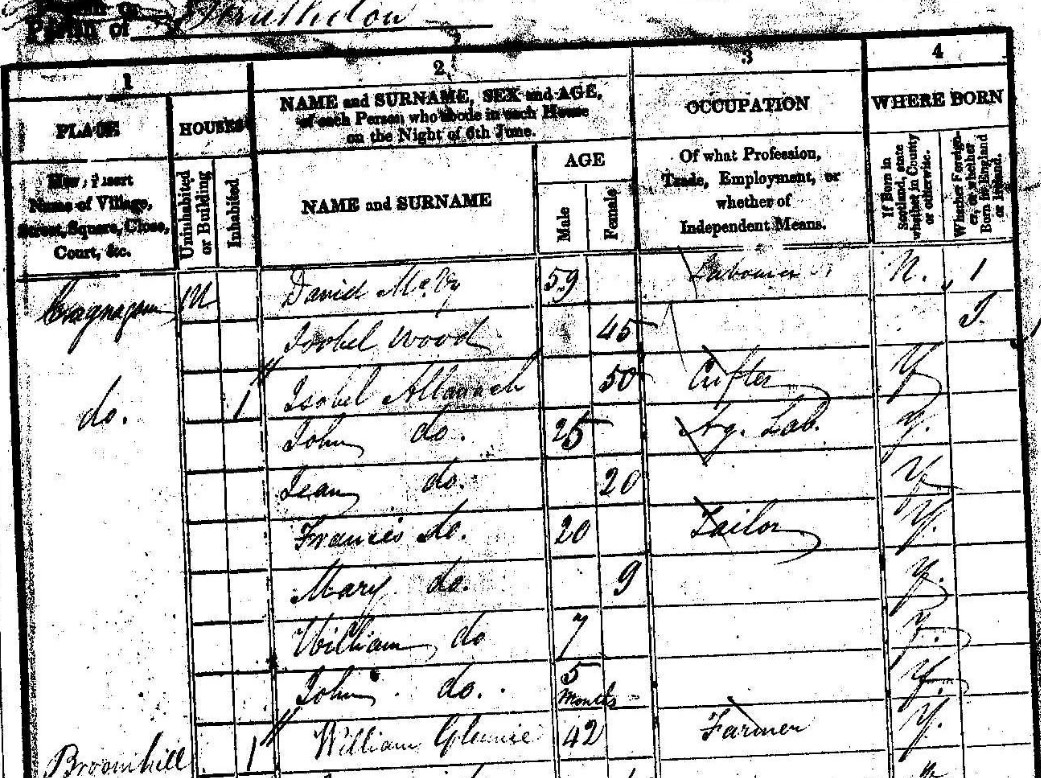 Parish of
1 2 3 4
PLACE HOUSES NAME and SURNAME, SEX and AGE, of each Person who abode in each House on the Night of 6th June. OCCUPATION WHERE BORN
Here insert Name of Village, Street, Square, Close, Court, &c.
Uninhabited or Building
Inhabited
NAME and SURNAME
AGE
Male
Female
Of what Profession, Trade, Employment, or whether of Independent Means.
If Born in Scotland, state whether in County or otherwise.
Whether Foreigner, or whether Born in England or Ireland.
David 59 Labourer N. 1
Isobel Wood 45 I.
do. 1 Isobel 50 Crofter Y
John do. 25 Ag. Lab. Y.
Jean do. 20 Y
Francis do. 20 Tailor Y.
Mary do. 9 Y.
William do 7 Y.
John do. 5 Months Y.
Broomhill 1 William Glennie 42 Farmer Y.